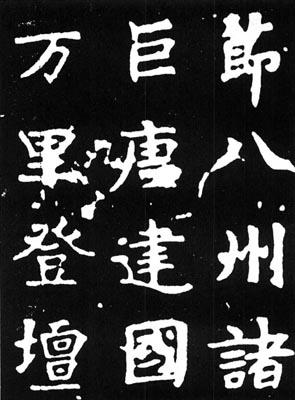 節八州諸
巨唐建國
万里登壇